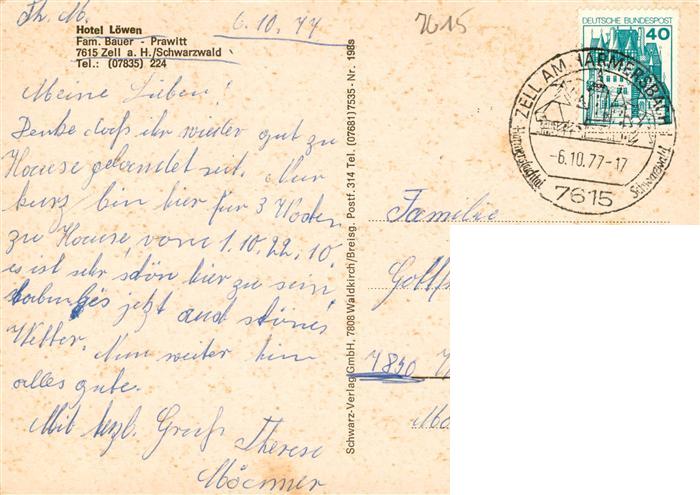 Th. M. 6.10.77
7615
Hotel Löwen
Fam. Bauer - Prawitt
7615 Zell a. H./Schwarzwald
Tel.: (07835) 224
Meine Lieben!
Denke daß ihr wieder gut zu
Hause gelandet seit. Nur
kurz bin hier für 3 Wochen
zu Hause vom 1.10.22.10.
es ist sehr schön hier zu sein
jetzt auch schönes
Wetter. Nun weiter hin
alles gute.
Mit hrzl. Gruß Therese
Schwarz-Verlag GmbH, 7808 Waldkirch/Breisg. Postf. 314 Tel. (07681) 7535 - Nr. 198s
DEUTSCHE BUNDESPOST
40
ZELL AM HARMERSBACH
-6.10.77-17
Schwarzwald
7615
Familie
7850